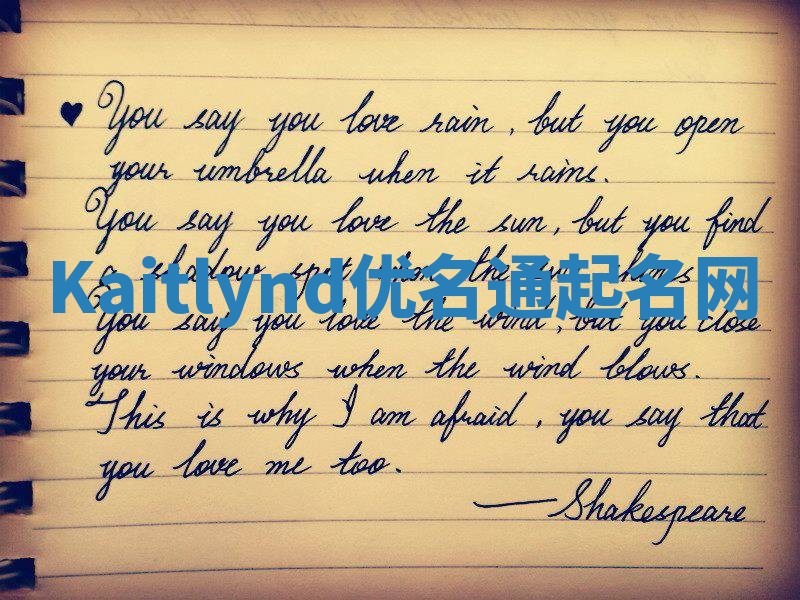 ♥ You say you love rain, but you open
your umbrella when it rains.
You say you love the sun, but you find
a shadow spot when the sun shines
Kaitlynd优名通起名网
You say you love the wind, but you close
your windows when the wind blows.
This is why I am afraid, you say that
you love me too.
—Shakespeare